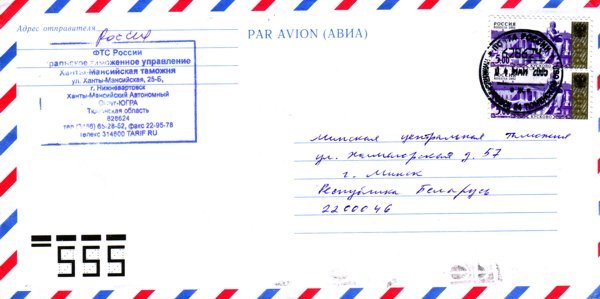 Адрес отправителя
Россия
PAR AVION (АВИА)
ФТС России
Уральское таможенное управление
Ханты-Мансийская таможня
ул. Ханты-Мансийская, 25-Б,
г. Нижневартовск
Ханты-Мансийский Автономный
Округ-ЮГРА
Тюменская область
626624
тел (3466) 65-28-52, факс 22-95-78
телекс 314600 TARIF.RU
РОССИЯ
5.00
МАЙ 2005
Минская центральная таможня
ул.
д. 57
г. Минск
Республика Беларусь
2200046
555